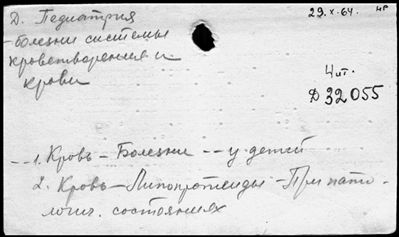 Д. Педиатрия
29.X.64. чр
-болезни системы
кроветворения и
крови
Чит.
Д 32055
-- 1. Кровь - Болезни -- у детей
2. Кровь - Липопротеиды - При пато-
логич. состояниях